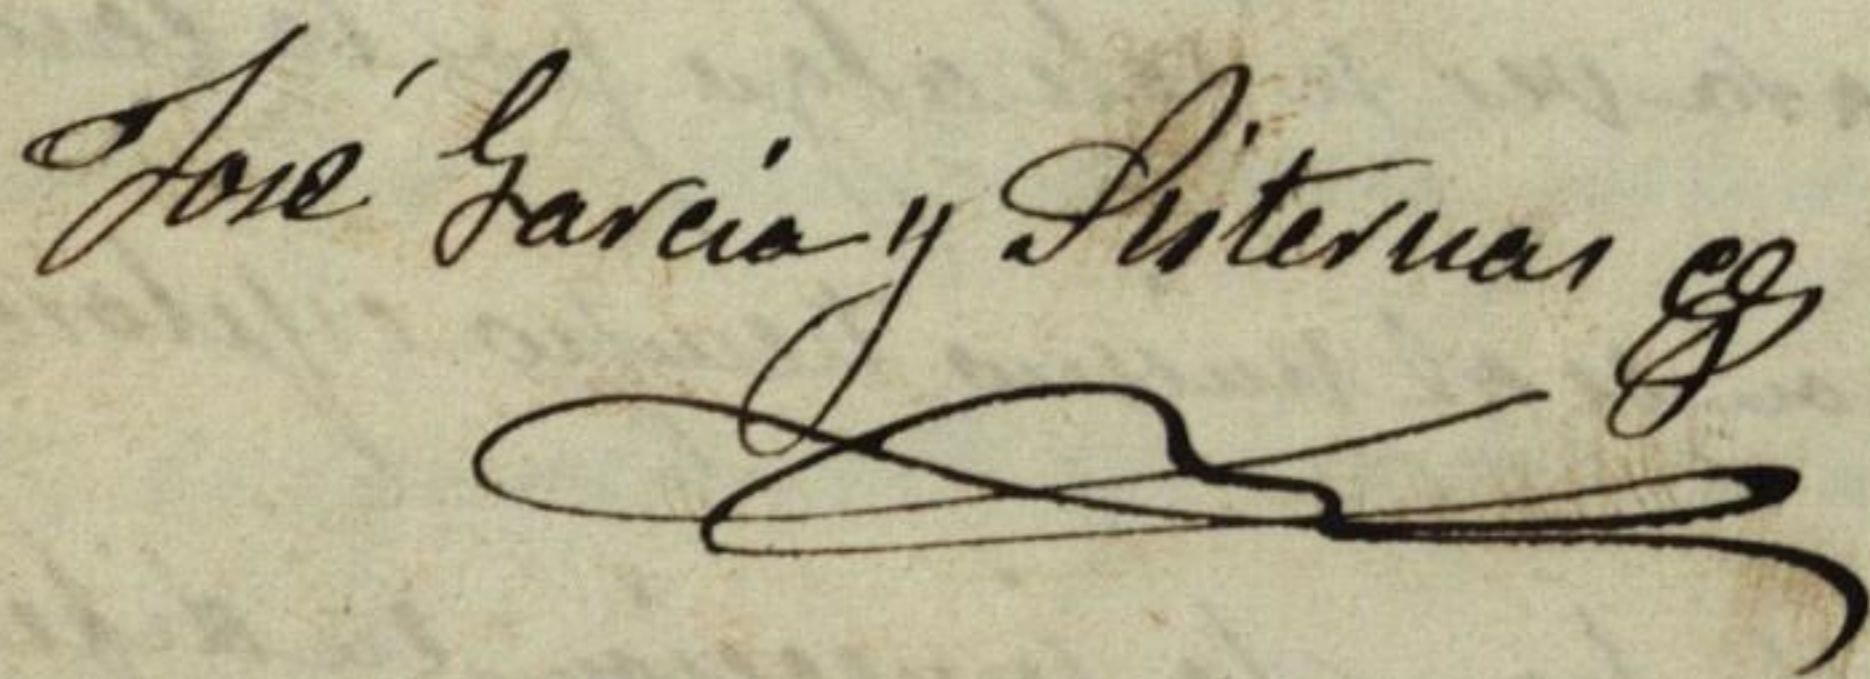 José Garcia y Sisternas